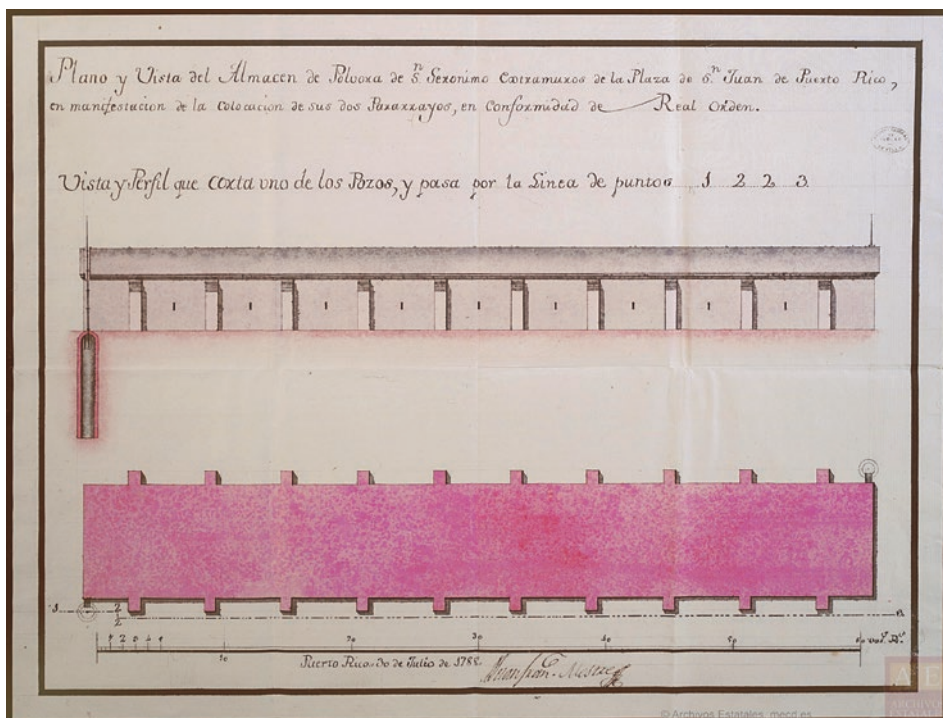 Plano y Vista del Almacen de Polvora de Sn Geronimo Extramuros de la Plaza de Sn Juan de Puerto Rico,
en manifestacion de la colocacion de sus dos Pararrayos, en conformidad de Real Orden.
Vista y Perfil que corta uno de los Pozos, y pasa por la Linea de puntos 1 2 2 3.
1 2
2
10 20 30 40 50
Puerto Rico 30 de Julio de 1788.
Juan Fran.co Mestre
© Archivos Estatales, mecd.es
ARCHIVOS
ESTATALES